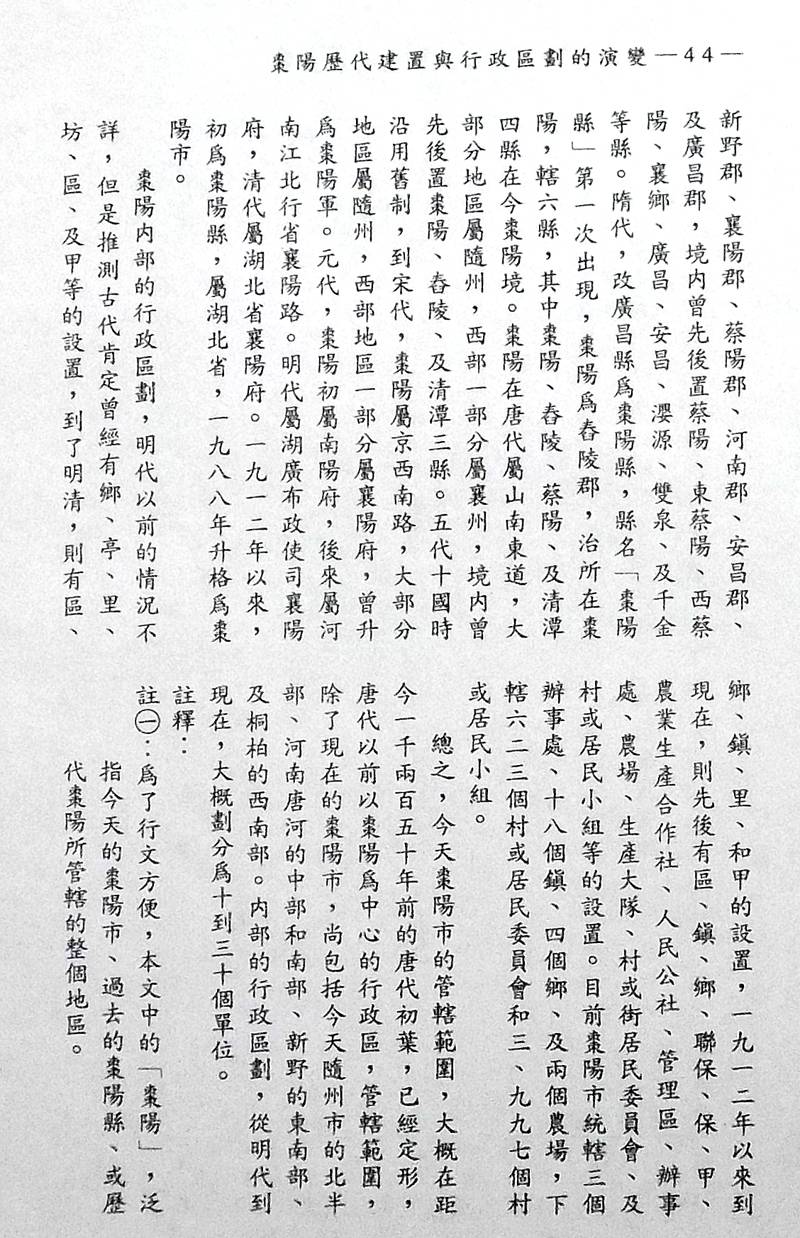 棗陽歷代建置與行政區劃的演變—44—
新野郡、襄陽郡、蔡陽郡、河南郡、安昌郡、
及廣昌郡，境内曾先後置蔡陽、東蔡陽、西蔡
陽、襄鄉、廣昌、安昌、瀴源、雙泉、及千金
等縣。隋代，改廣昌縣爲棗陽縣，縣名「棗陽
縣」第一次出現，棗陽爲舂陵郡，治所在棗
陽，轄六縣，其中棗陽、舂陵、蔡陽、及清潭
四縣在今棗陽境。棗陽在唐代屬山南東道，大
部分地區屬隨州，西部一部分屬襄州，境内曾
先後置棗陽、舂陵、及清潭三縣。五代十國時
沿用舊制，到宋代，棗陽屬京西南路，大部分
地區屬隨州，西部地區一部分屬襄陽府，曾升
爲棗陽軍。元代，棗陽初屬南陽府，後來屬河
南江北行省襄陽路。明代屬湖廣布政使司襄陽
府，清代屬湖北省襄陽府。一九一二年以來，
初爲棗陽縣，屬湖北省，一九八八年升格爲棗
陽市。
棗陽内部的行政區劃，明代以前的情況不
詳，但是推測古代肯定曾經有鄉、亭、里、
坊、區、及甲等的設置，到了明清，則有區、
鄉、鎭、里、和甲的設置，一九一二年以來到
現在，則先後有區、鎭、鄉、聯保、保、甲、
農業生產合作社、人民公社、管理區、辦事
處、農場、生產大隊、村或街居民委員會、及
村或居民小組等的設置。目前棗陽市統轄三個
辦事處、十八個鎭、四個鄉、及兩個農場，下
轄六二三個村或居民委員會和三、九九七個村
或居民小組。
總之，今天棗陽市的管轄範圍，大概在距
今一千兩百五十年前的唐代初葉，已經定形，
唐代以前以棗陽爲中心的行政區，管轄範圍，
除了現在的棗陽市，尚包括今天隨州市的北半
部、河南唐河的中部和南部、新野的東南部、
及桐柏的西南部。内部的行政區劃，從明代到
現在，大概劃分爲十到三十個單位。
註釋：
註㊀：爲了行文方便，本文中的「棗陽」，泛
指今天的棗陽市、過去的棗陽縣、或歷
代棗陽所管轄的整個地區。